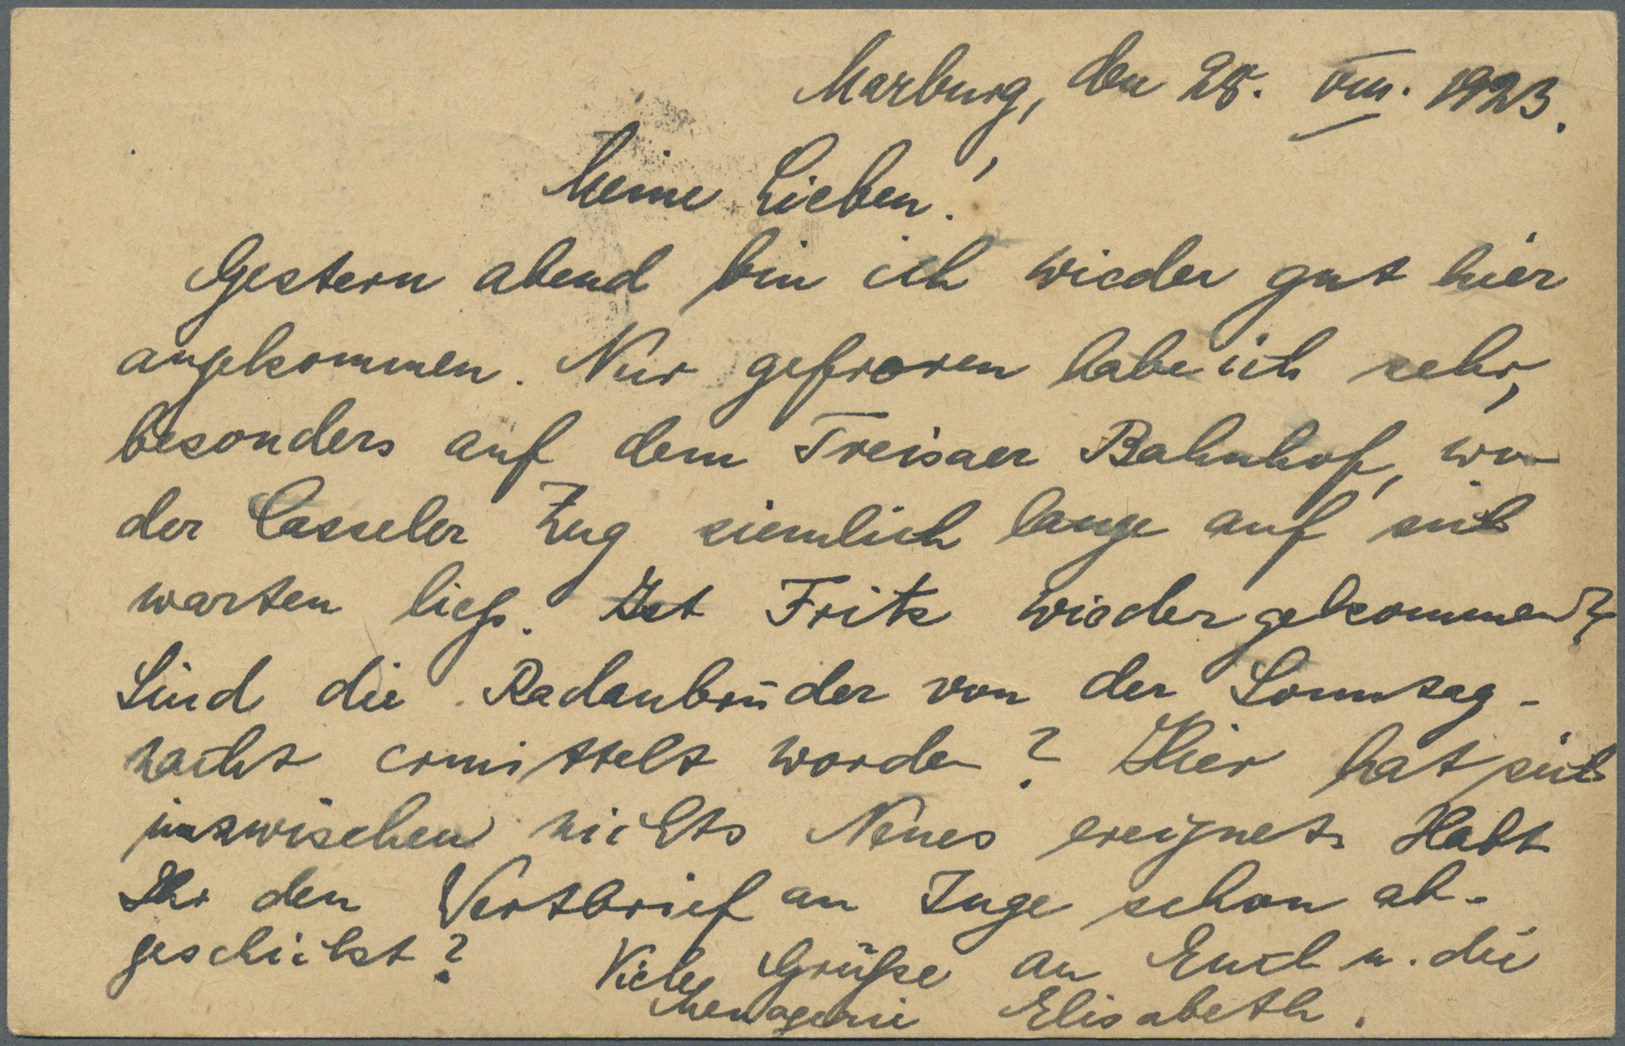 Marburg, den 28. VIII. 1923.
Meine Lieben!
Gestern abend bin ich wieder gut hier
angekommen. Nur gefroren habe ich sehr,
besonders auf dem Treisaer Bahnhof, wo
der Casseler Zug ziemlich lange auf sich
warten ließ. Ist Fritz wieder gekommen?
Sind die Radaubrüder von der Sonntag-
nacht ermittelt worden? Hier hat sich
inzwischen nichts Neues ereignet. Habt
Ihr den Wertbrief an Inge schon ab-
geschickt? Viele Grüße an Euch u. die
Menagerie Elisabeth.